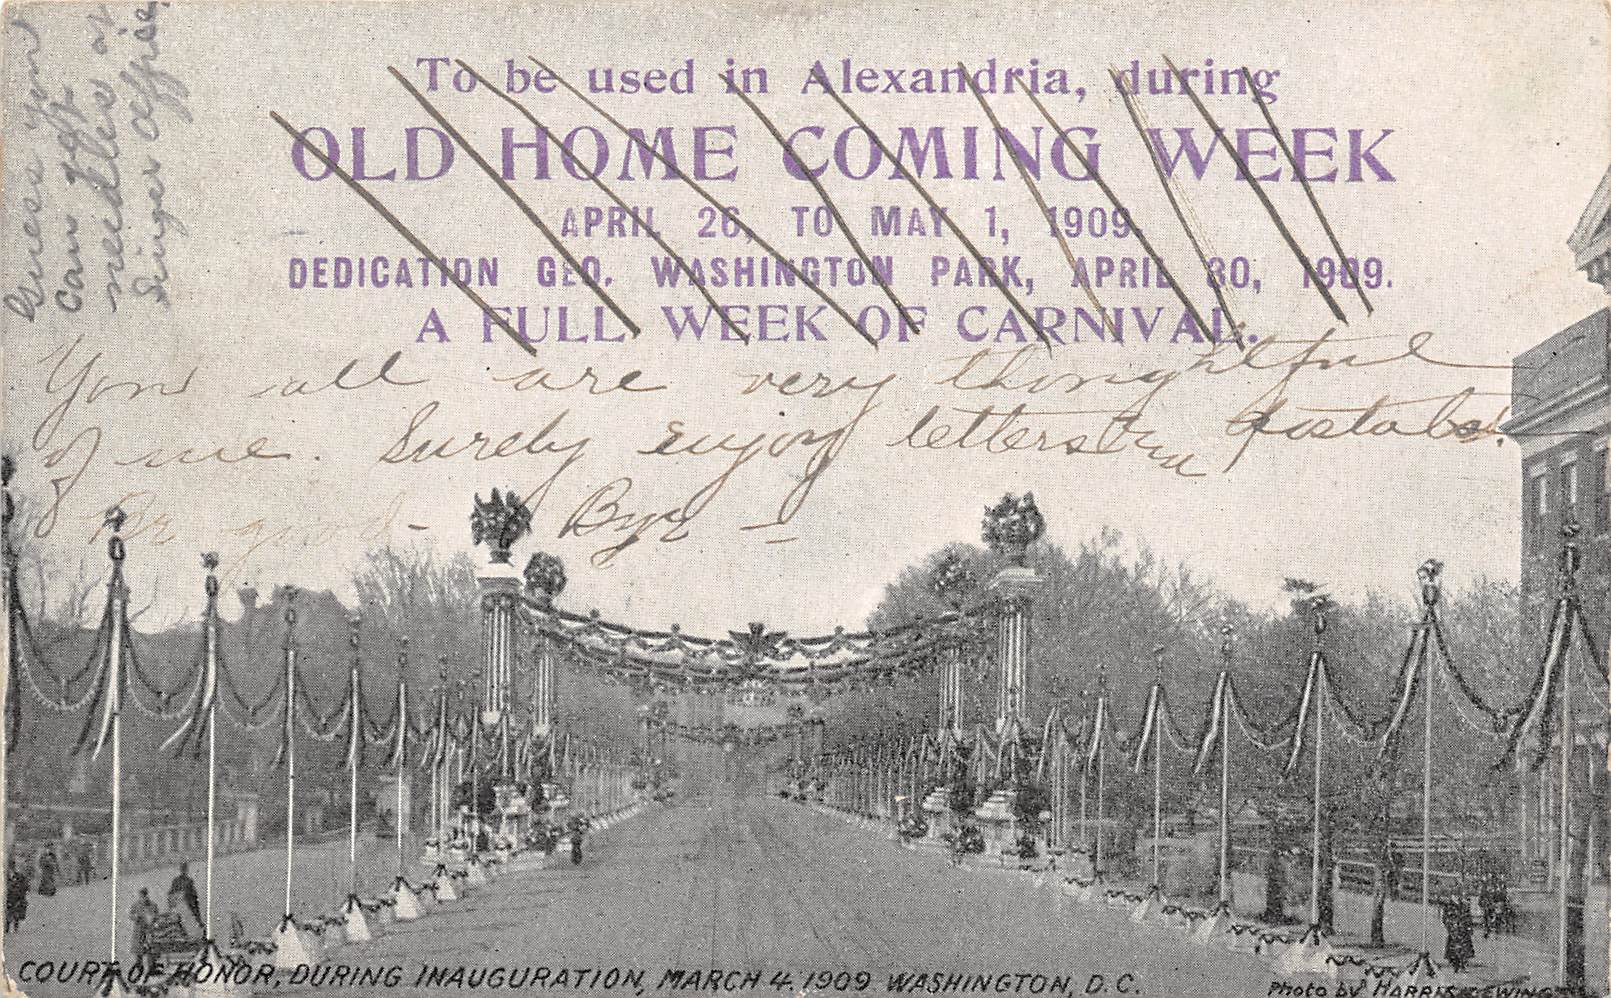 Guess you
can get
needles at
Singer office
To be used in Alexandria, during
OLD HOME COMING WEEK
APRIL 26, TO MAY 1, 1909.
DEDICATION GEO. WASHINGTON PARK, APRIL 30, 1909.
A FULL WEEK OF CARNIVAL.
You all are very thoughtful
of me. Surely enjoy letters
Be good - Bye -
COURT OF HONOR, DURING INAUGURATION, MARCH 4, 1909 WASHINGTON, D.C.
Photo by HARRIS & EWING